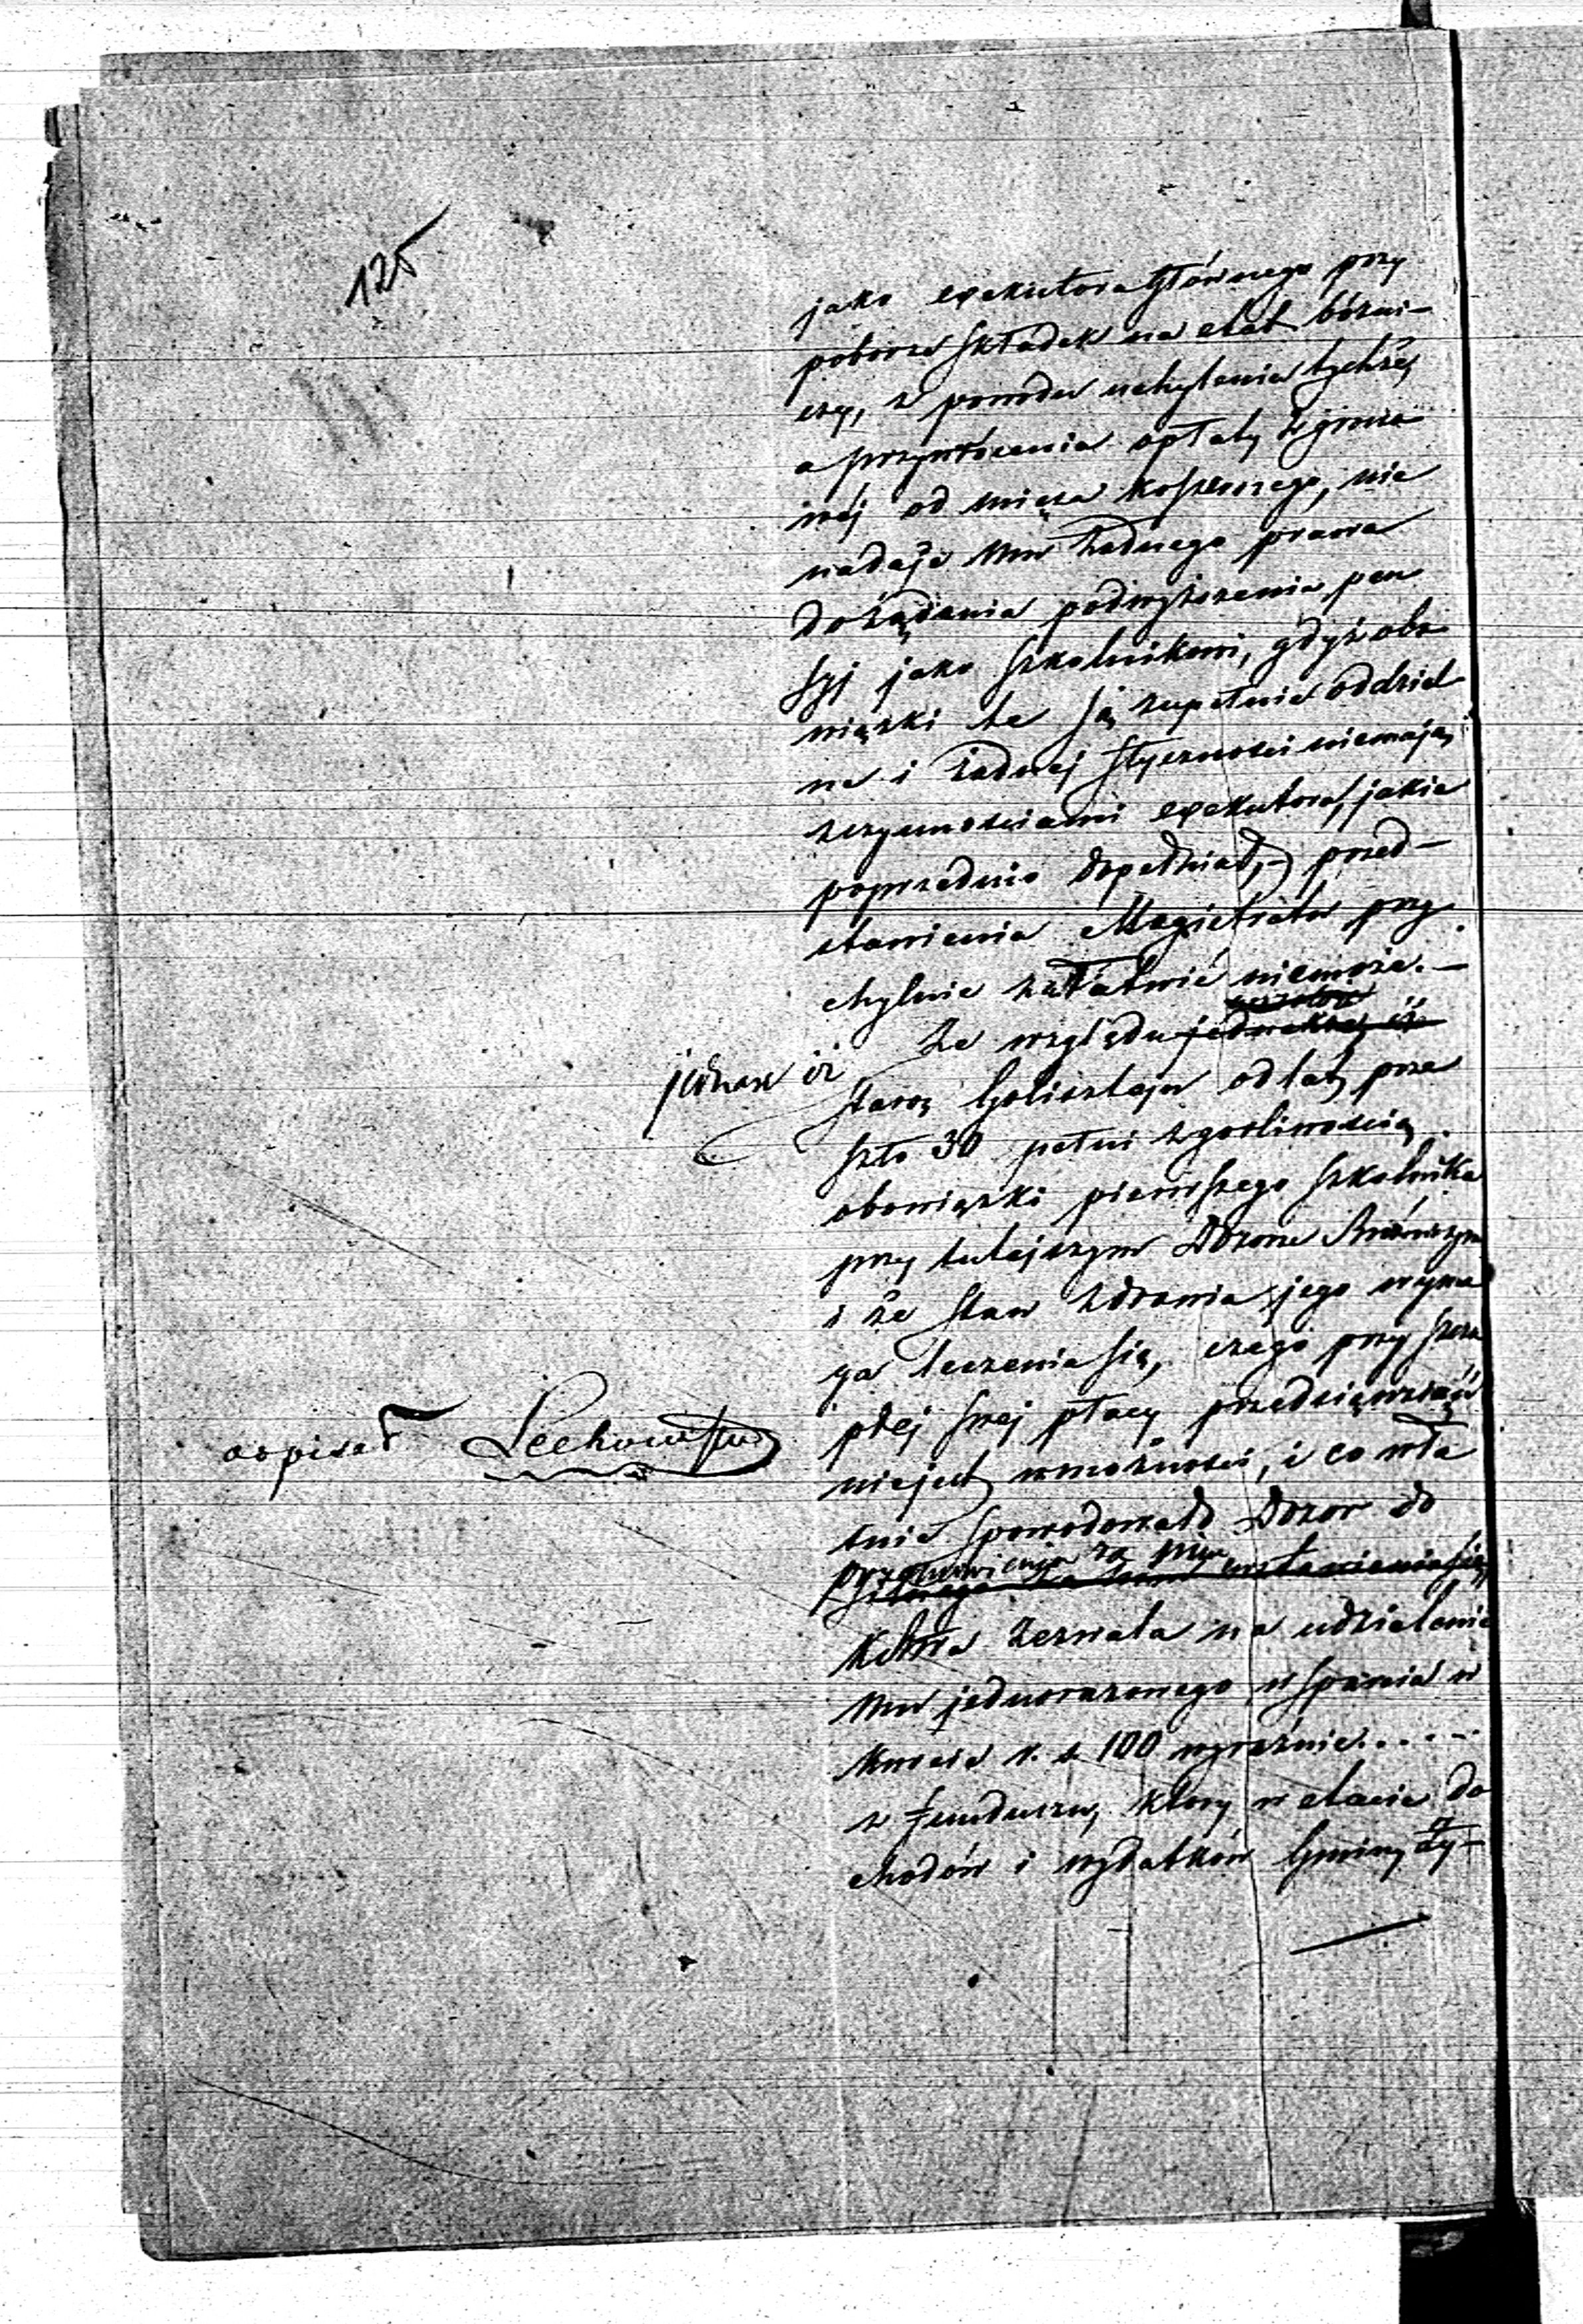 125
jako exekutora głównego przy
poborze składek na etat bóżni-
czy, z powodu uchylenia tychże,
a przywrócenia opłaty
nej od mięsa koszernego, nie
nadaje mu żadnego prawa
do żądania podwyższenia pen
syj jako szkolnikowi, gdyż obo
wiązki te są zupełnie oddziel
ne i żadnej styczności niemają
z czynnościami exekutora, jakie
poprzednio dopełniał, przed-
stawienia Magistratu przy
chylnie załatwić niemoże.-
Ze względu jednakże iż
jednak iż
stary Goldsztajn od lat prze
szło 30 pełni z gorliwością
obowiązki pierwszego szkolnika
przy tutejszym Dozorze Bóżniczym
i że stan zdrowia jego wyma
ga leczenia się, czego przy szczu
płej swej płacy przedsięwziąść
niejest w możności, i co wła
śnie spowodowało Dozor do
przemówienia za nim wstawienia się
zezwala na udzielenie
mu jednorazowego wsparcia w
kwocie r. s. 100 wyraźnie.....
z funduszu, który w etacie do
chodów i wydatków Gminy Ży-
odpisał Lechowski